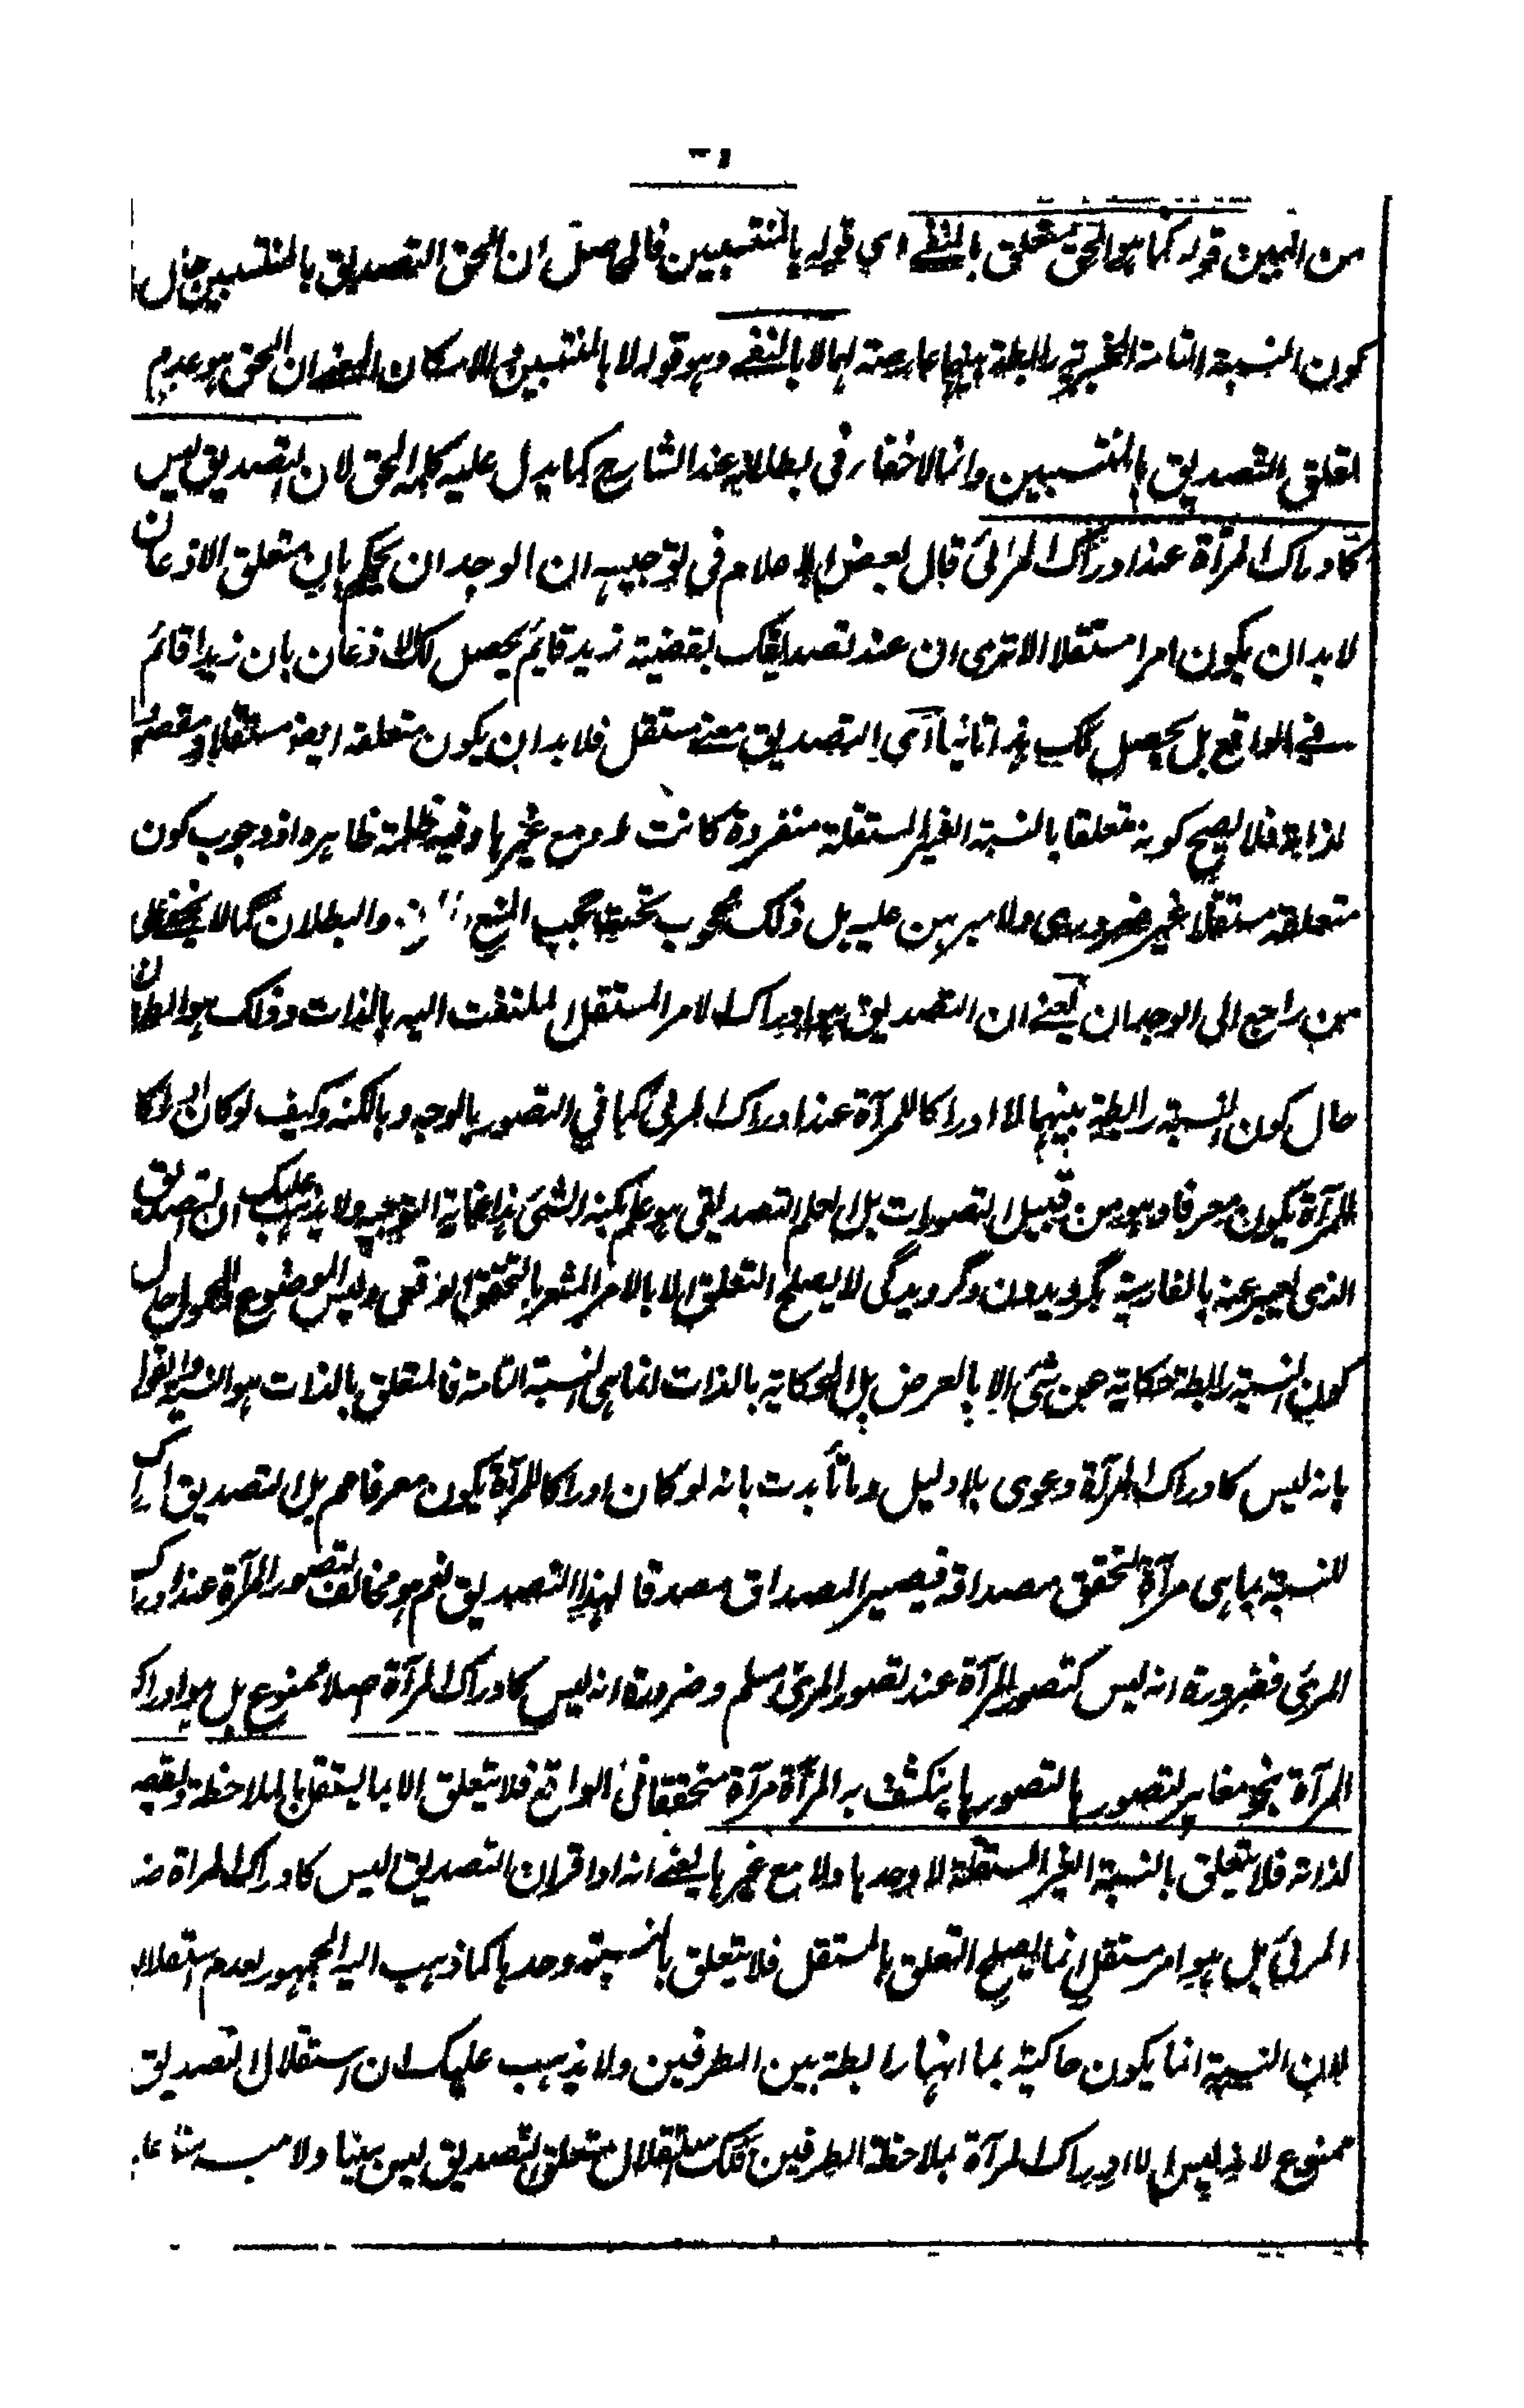 من البين قوله كما هو الحق متعلق بالمنفي اي قوله بالمنتسبين فالحاصل ان الحق التصديق بالمنتسبين حال
كون النسبة التامة الخبرية رابطة بينهما عارضة لهما لا بالنفي وهو قوله لا بالمنتسبين والا لكان المعنى ان الحق هو عدم
تعلق التصديق بالمنتسبين وانما لا خفاء في بطلانه عند الشارح كما يدل عليه كلمة الحق لان التصديق ليس
كادراك المرآة عند ادراك المرئى قال بعض الاعلام في توجيهه ان الوجدان يحكم بان متعلق الاذعان
لا بد ان يكون امرا مستقلا الا ترى ان عند تصديقك بقضية زيد قايم يحصل لك الاذعان بان زيدا قائم
في الواقع بل يحصل لك هذا ثانيا اى التصديق معنى مستقل فلا بد ان يكون متعلقه ايضا مستقلا ومقصودا
لذاته فلا يصح كونه متعلقا بالنسبة الغير المستقلة منفردة كانت او مع غيرها وفيه ظلمة ظاهرة اذ وجوب كون
متعلقه مستقلا غير ضروري ولا مبرهن عليه بل ذلك محجوب تحت حجب المنع والبطلان كما لا يخفى على
من راجع الى الوجدان يعني ان التصديق هو ادراك الامر المستقل الملتفت اليه بالذات وذلك هو الطرفان
حال كون النسبة رابطة بينهما لا ادراكا للمرآة عند ادراك المرئى كما في التصور بالوجه وبالكنه وكيف لو كان ادراكا
للمرآة يكون معرفا وهو من قبيل التصورات بل العلم التصديقي هو علم بكنه الشئ هذا غاية التوجيه ولا يذهب عليك ان التصديق
الذى يعبر عنه بالفارسية بگرويدن وگرويدگى لا يصلح التعلق الا بالامر المشعر بالتحقق الواقعى وليس الموضوع والمحمول حال
كون النسبة رابطة حكاية عن شئ الا بالعرض بل الحكاية بالذات انما هى النسبة التامة فالمتعلق بالذات هو النسبة والقول
بانه ليس كادراك المرآة دعوى بلا دليل وما تأيدت بانه لو كان ادراكا للمرآة يكون معرفا مم بل التصديق ادراك
للنسبة بما هى مرآة لتحقق مصداقه فيصير المصداق مصدقا لهذا التصديق نعم هو مخالف لتصور المرآة عند ادراك
المرئى فضرورة انه ليس كتصور المرآة عند تصور المرئى مسلم وضرورة انه ليس كادراك المرآة اصلا ممنوع بل هو ادراك
المرآة بنحو مغاير لتصورها لتصورها ينكشف به المرآة مرآة متحققا في الواقع فلا يتعلق الا بما يستقل بالملاحظة ويقصد
لذاته فلا يتعلق بالنسبة الغير المستقلة لا وحدها ولا مع غيرها يعني انه اذا قرر ان التصديق ليس كادراك المرآة عند
المرئى بل هو امر مستقل انما يصلح التعلق بالمستقل فلا يتعلق بالنسبة وحدها كما ذهب اليه الجمهور لعدم استقلالها
لان النسبة انما يكون حاكية بما انها رابطة بين الطرفين ولا يذهب عليك ان استقلال التصديق
ممنوع لانه ليس الا ادراك المرآة بملاحظة الطرفين فلك استقلال متعلق التصديق ليس بينا ولا